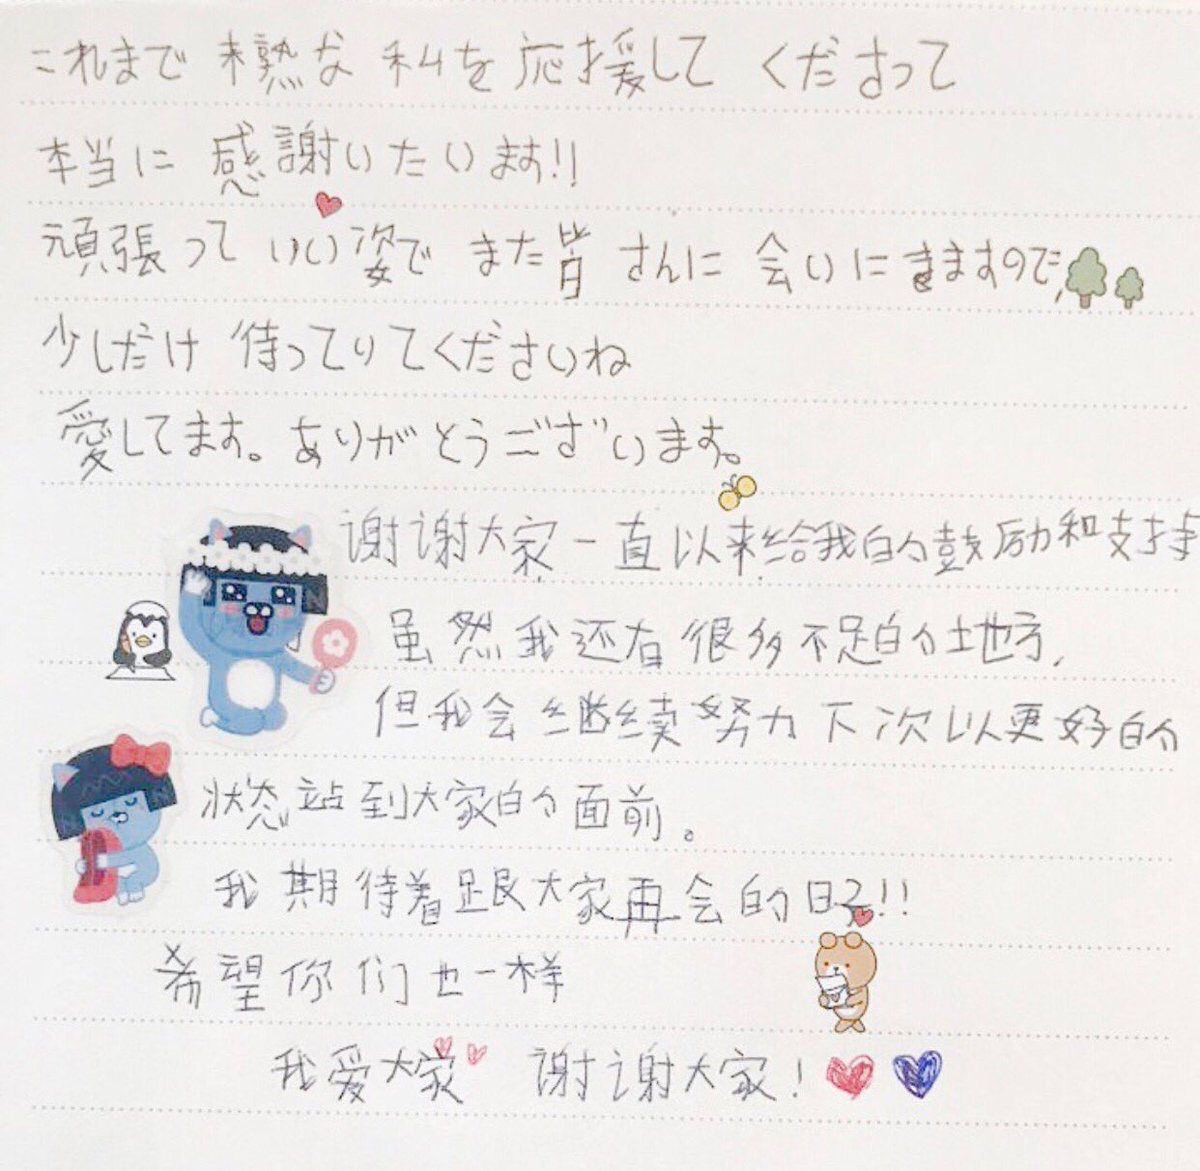 これまで 未熟な 私を 応援して くださって
本当に 感謝いたします!!
頑張って いい姿で また皆 さんに 会いにきますので,
少しだけ 待ってりてくださいね
愛してます。ありがとうございます。
谢谢大家一直以来给我的鼓励和支持
虽然我还有很多不足的地方,
但我会继续努力下次以更好的
状态站到大家的面前。
我期待着跟大家再会的日子!!
希望你们也一样
我爱大家 谢谢大家!